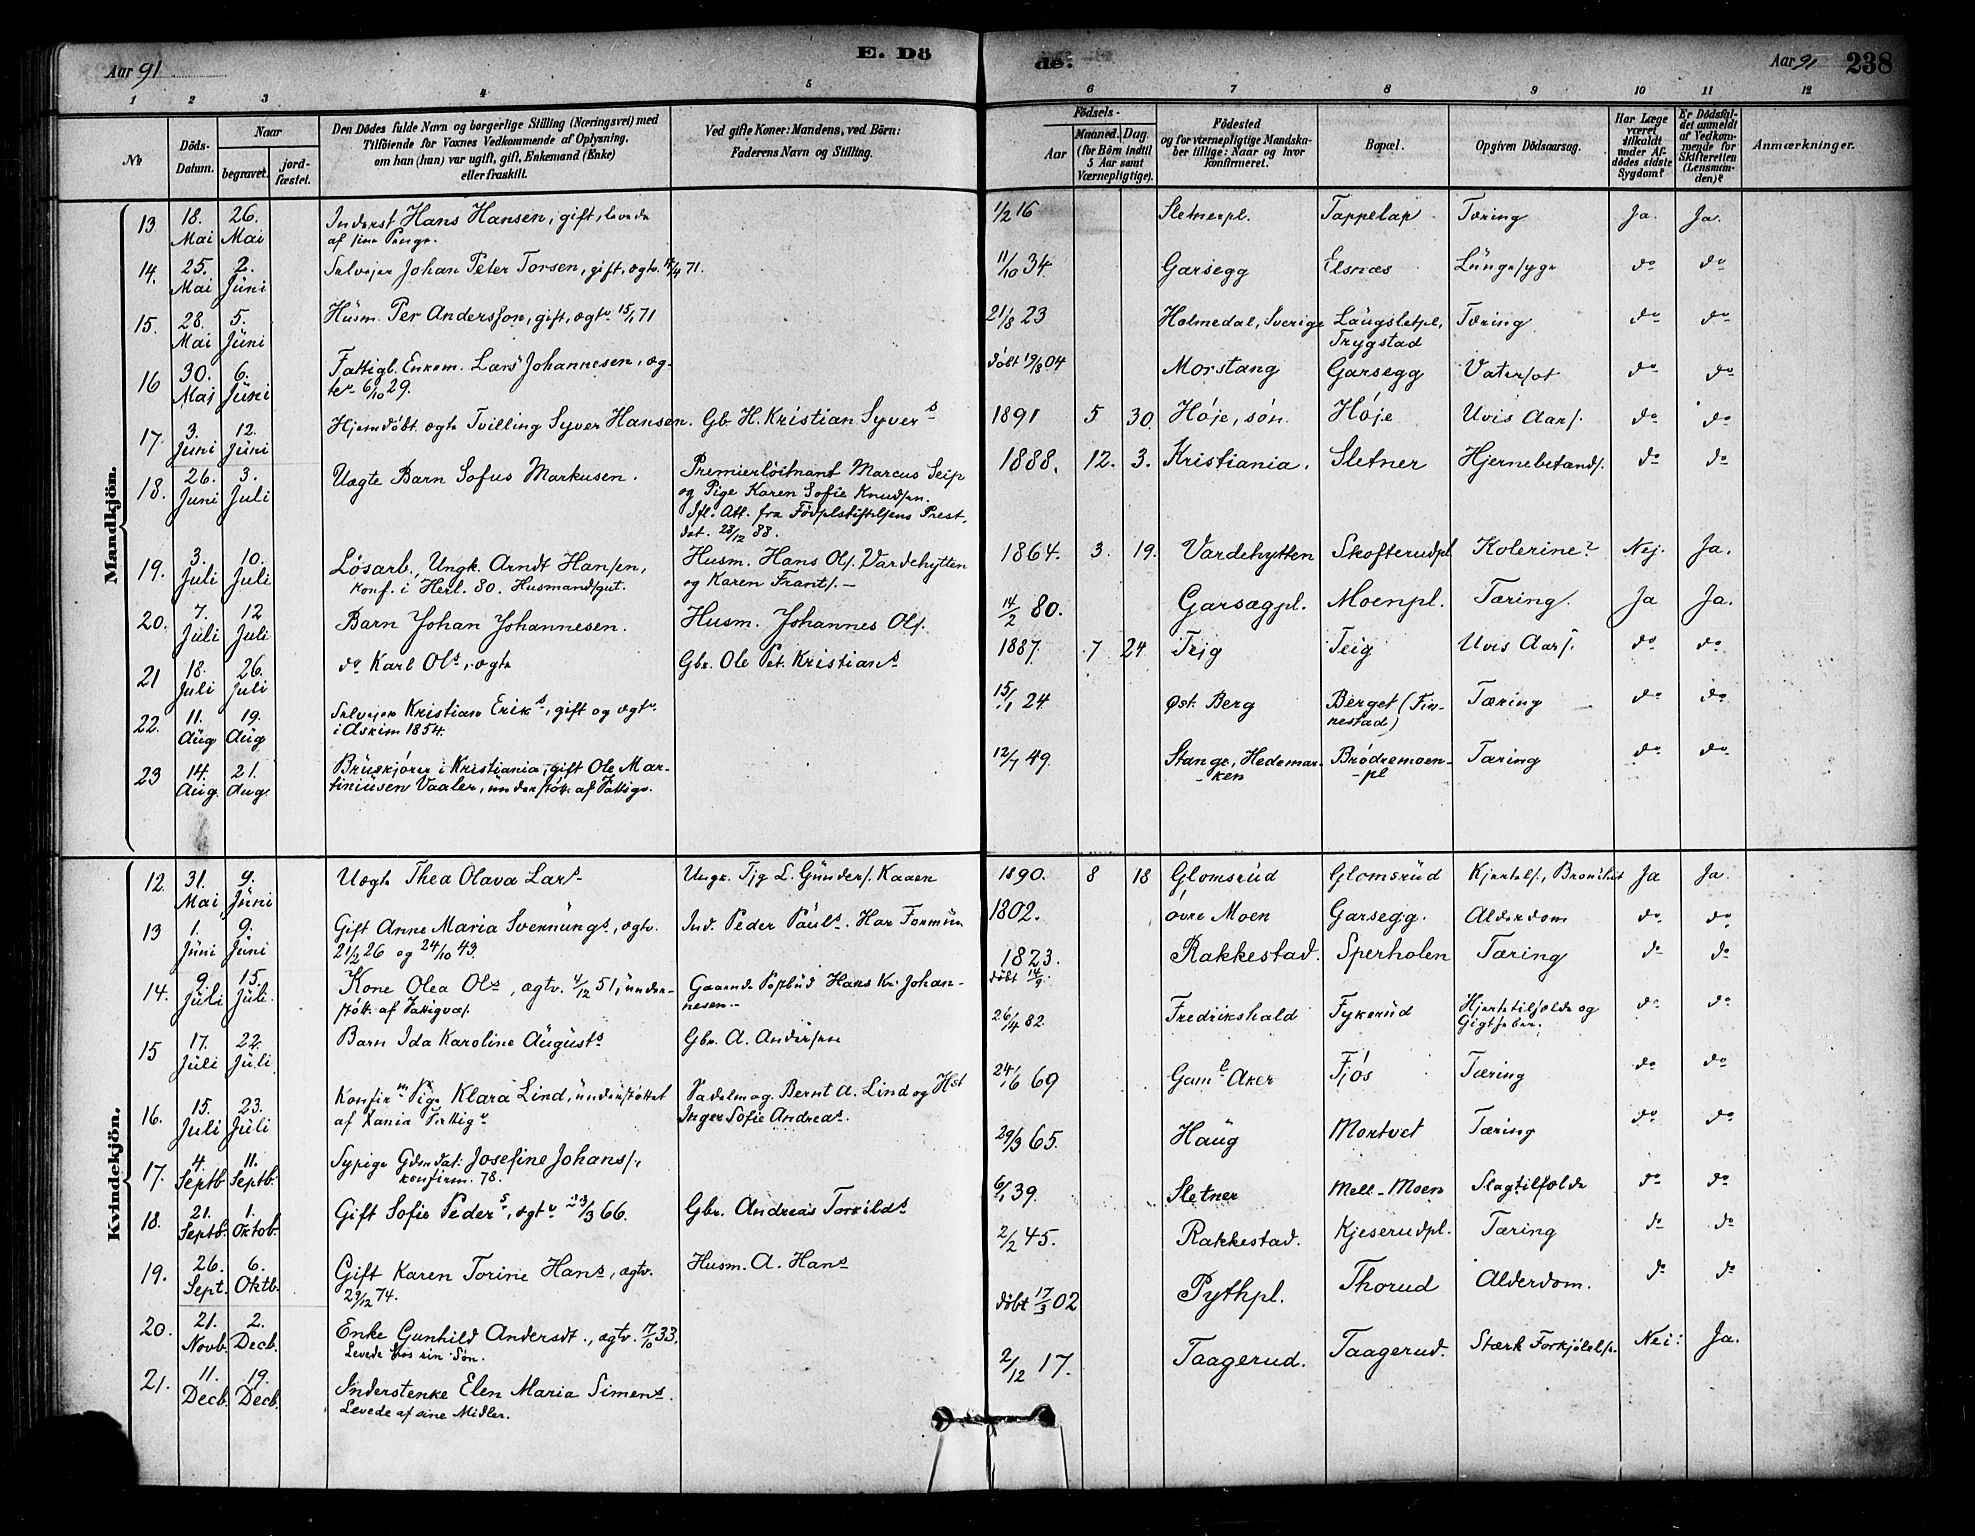 Aar 91
E. Dö
de:
Aar 91
238
1 2 3 4 5 6 7 8 9 10 11 12
No
Döds-Datum.
Naar
begravet.
jord-fæstet.
Den Dödes fulde Navn og borgerlige Stilling (Næringsvei) med
Tilföiende for Voxnes Vedkommende af Oplysning,
om han (hun) var ugift, gift, Enkemand (Enke)
eller fraskilt.
Ved gifte Koner: Mandens, ved Börn:
Faderens Navn og Stilling.
Födsels-
Aar
Maaned. Dag.
(for Börn indtil
5 Aar samt
Værnepligtige).
Födested
og for værnepligtige Mandska-
ber tillige: Naar og hvor
konfirmeret.
Bopæl.
Opgiven Dödsaarsag.
Har Læge
været
tilkaldt
under Af-
dödes sidste
Sygdom?
Er Dödsfal-
det anmeldt
af Vedkom-
mende for
Skifteretten
(Lensman-
den)?
Anmærkninger.
Mandkjön.
13 18. Mai 26. Mai Inderst Hans Hansen, gift, levede af sine Penge. 1/2 16 Sletnerpl. Tappelap Tæring Ja. Ja.
14. 25. Mai 2. Juni Selvejer Johan Peter Torsen, gift, ægtv. /4 71. 11/10 34 Garsegg Elsnæs Lungesyge do do
15. 28. Mai 5. Juni Husm. Per Andersson, gift, ægtv. 15/1 71 21/8 23 Holmedal, Sverige Laugsletpl, Trygstad Tæring do do
16 30. Mai 6. Juni Fattigl. Enkem. Lars Johannesen, æg-
tev. 6/10 29. døbt 19/8 04 Morstang Garsegg Vatersot do do
17. 3. Juni 12. Juni Hjemdøbt ægte Tvilling Syver Hansen. Gb H. Kristian Syvers 1891 5 30. Høje, søn. Høje Uvis Aars. do do
18. 26. Juni 3. Juli Uægte Barn Sofus Markusen. Premierløitnant Marcus Seip
og Pige Karen Sofie Knudsen.
Ifl. Att. fra Fødselsstiftelsens Prest,
dat. 28/12 88. 1888. 12. 3. Kristiania. Sletner Hjernebetænds. do do
19. 3. Juli 10. Juli Løsarb., Ungk. Arndt Hansen,
konf. i Herl. 80. Husmandsgut. Husm. Hans Ols. Vardehytten
og Karen Frants. – 1864. 3. 19. Vardehytten Skofterudpl Kolerine? Nej. Ja.
20. 7. Juli 12 Juli Barn Johan Johannesen. Husm. Johannes Ols. 14/2 80. Garsægpl. Moenpl. Tæring. Ja Ja.
21 18. Juli 26. Juli do Karl Ols, ægte Gbr. Ole Pet. Kristians 1887. 7 24 Teig Teig Uvis Aars. do do
22. 11. Aug 19. Aug Selvejer Kristian Eriks, gift og ægtv.
i Askim 1854. 15/1 24 Øst. Berg Berget (Fin-
nestad) Tæring do do
23 14. Aug. 21. Aug. Bruskjører i Kristiania, gift Ole Mar-
tiniusen Vaaler, understøt. af Fattigv. 12/7 49. Stange, Hedemar-
ken Brødremoen-
pl Tæring do do
Kvindekjön.
12. 31. Mai 9. Juni Uægte Thea Olava Lars. Ungk. Tjg L. Gunders. Kaaen 1890. 8 18 Glomsrud Glomsrud Kjertels., Bronchit Ja Ja.
13 1. Juni 9. Juni Gift Anne Maria Svennungs, ægtv.
21/2 26 og 24/10 43. Ind. Peder Pauls. Har Formue 1802. øvre Moen Garsegg. Alderdom do do
14. 9. Juli 15. Juli. Kone Olea Ols, ægtv. 4/12 51, under-
støtt. af Fattigvæs. Gaaende Postbud Hans Kr. Johan-
nesen. 1823. døbt 14/9. Rakkestad. Sperholen Tæring do do
15 17. Juli 22. Juli Barn Ida Karoline Augusts Gbr. A. Andersen 26/4 82. Fredrikshald Fykerud Hjertetilfælde og
Gigtfeber. do do
16. 15. Juli 23. Juli Konfirm Pige Klara Lind, understøttet
af Kania Fattigv Sadelmag. Bernt A. Lind og Hst
Inger Sofie Andreas. 24/6 69 Gaml Aker Fjøs Tæring do do
17. 4. Septb 11. Septb. Sypige Gdmdat. Josefine Johans.,
konfirm. 78. 29/3 65. Haug Mortvet Tæring do do
18. 21. Septb. 1. Oktob. Gift Sofie Peders, ægtv 23/3 66. Gbr. Andreas Torkilds 6/1 39. Sletner Mell-Moen Slagtilfælde do do
19. 26. Sept. 6. Oktb. Gift Karen Torine Hans, ægtv.
29/12 74. Husm. A. Hans 2/2 45. Rakkestad. Kjeserudpl. Tæring do do
20. 21. Novb. 2. Decb. Enke Gunhild Andersdt., ægtv. 17/10 33.
Levede hos sin Søn. døbt 17/3 02 Pythpl. Thorud Alderdom. do do
21. 11. Decb. 19. Decb. Inderstenke Elen Maria Simens.
Levede af sine Midler. 2/12 17. Taagerud. Taagerud. Stærk Forkjølels. Nei: Ja.